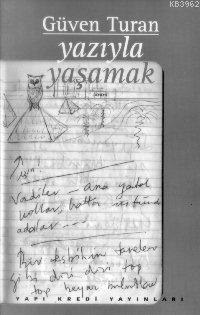 KB3962
Güven Turan
yazıyla
yaşamak
5
Vadiler – ana yatak
kollar, hatta üstünde
adalar ...
Bir tesbihin taneleri
gibi dizi dizi top
top beyaz bulutlar
YAPI KREDİ YAYINLARI